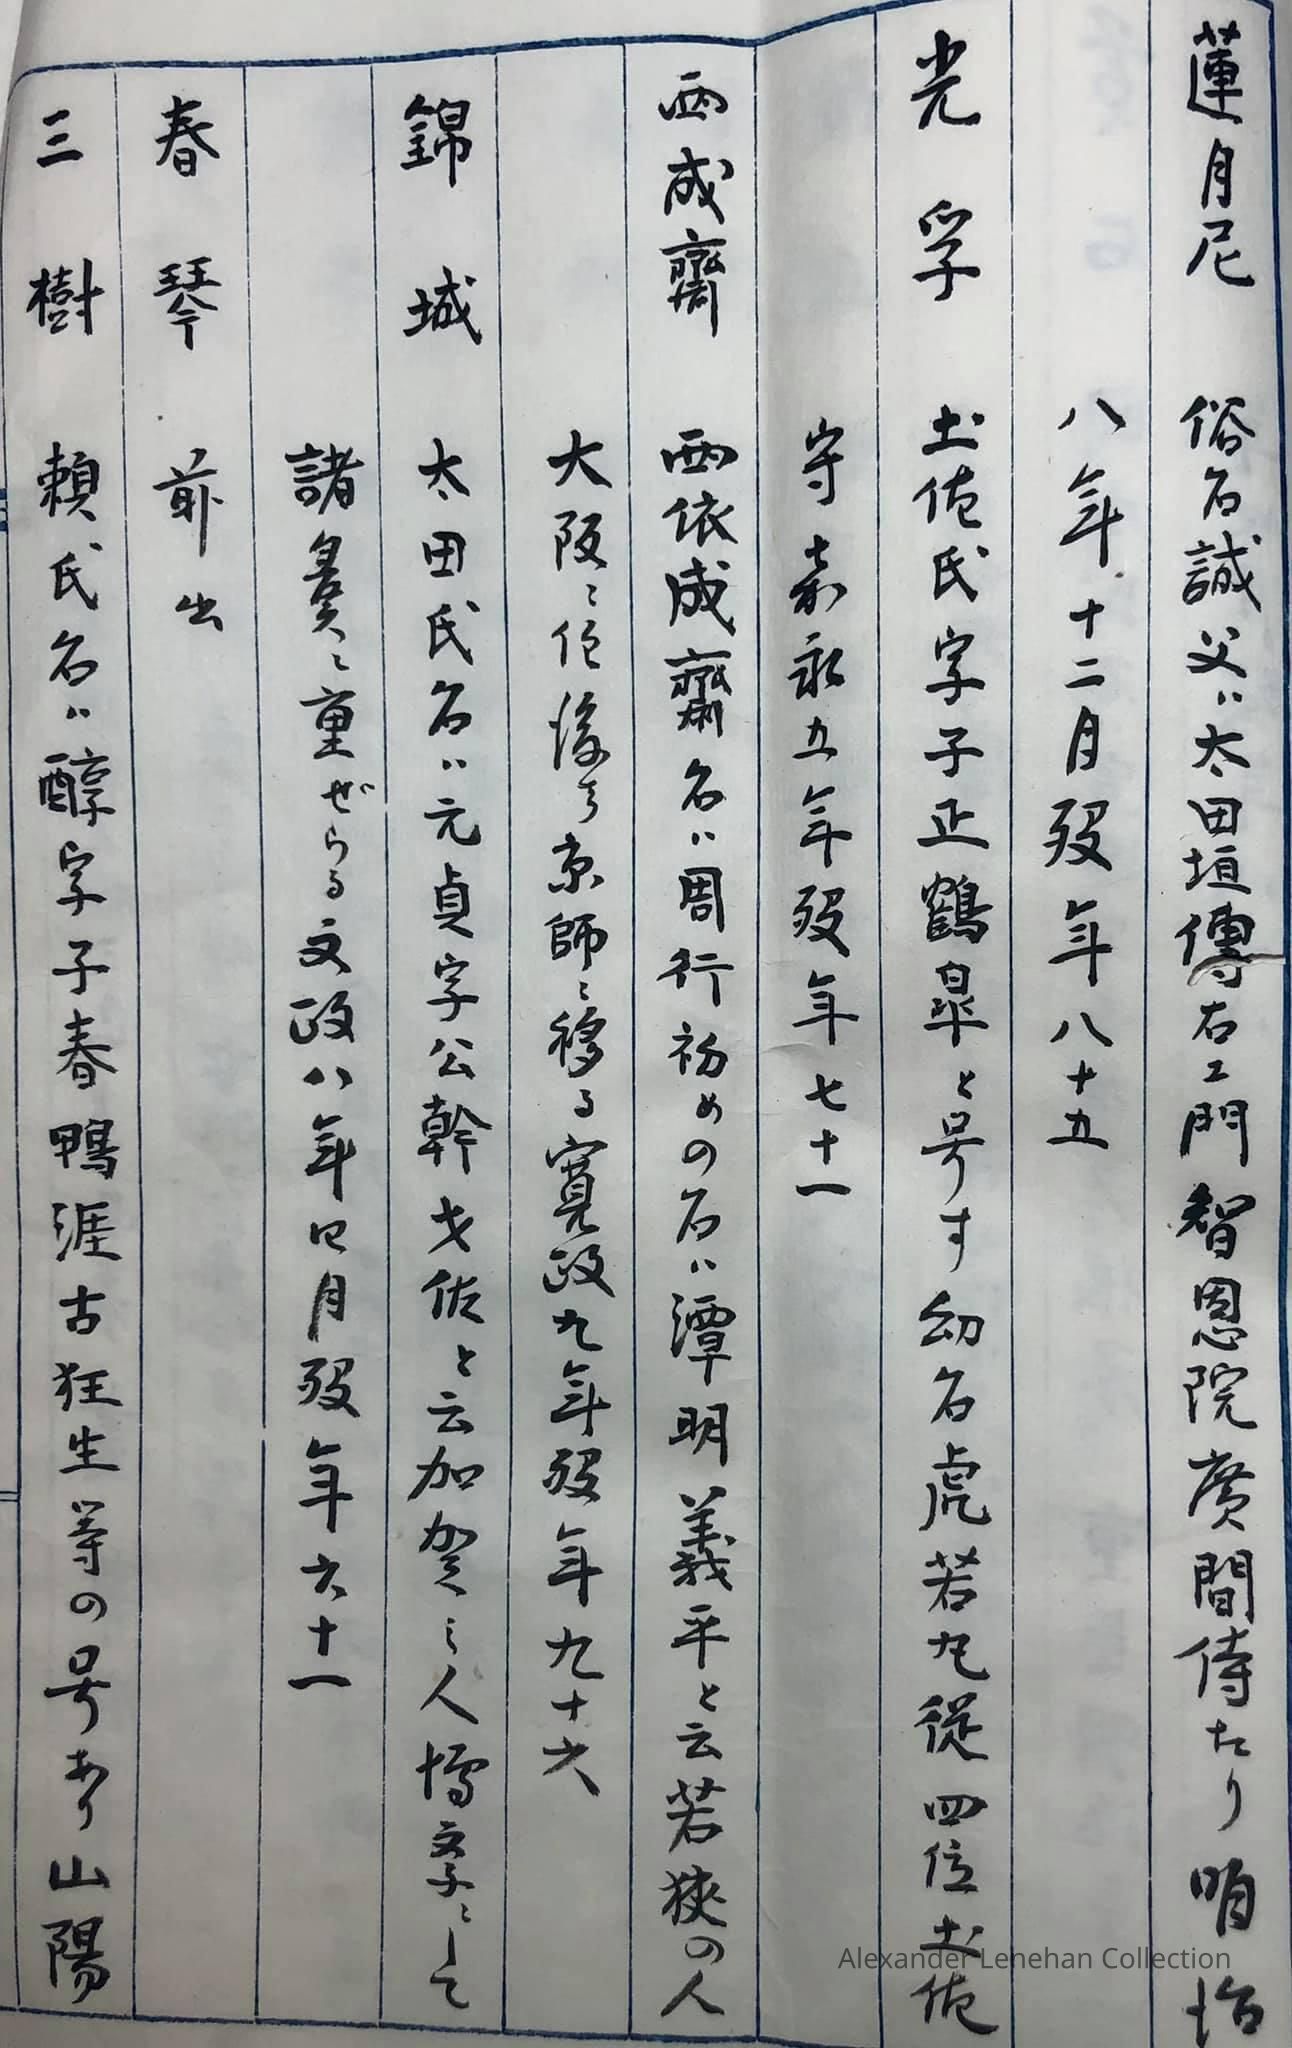 蓮月尼 俗名誠父ハ太田垣傳右エ門智恩院廣間侍たり明治
八年十二月歿年八十五
光孚 土佐氏字子正鶴皐と号す幼名虎若丸従四位土佐
守嘉永五年歿年七十一
西成齋 西依成齋名ハ周行初めの名ハ潭明義平と云若狹の人
大阪ニ住後ち京師ニ移る寛政九年歿年九十六
錦城 太田氏名ハ元貞字公幹才佐と云加賀之人博学ニして
諸矦ニ重ぜらる文政八年四月歿年六十一
春琴 前出
三樹 頼氏名ハ醇字子春鴨涯古狂生等の号あり山陽
Alexander Lenehan Collection